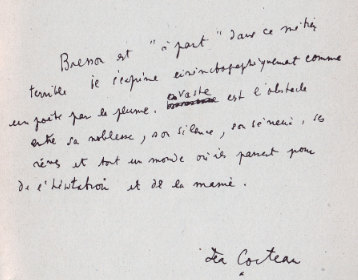 Bresson est "à part" dans ce métier
terrible je s'exprime cinématographiquement comme
un poète par la plume. vaste est l'obstacle
entre sa noblesse, son silence, son sérieux, ses
rêves et tout un monde où ils passent pour
de l'hésitation et de la manie.
Jean Cocteau